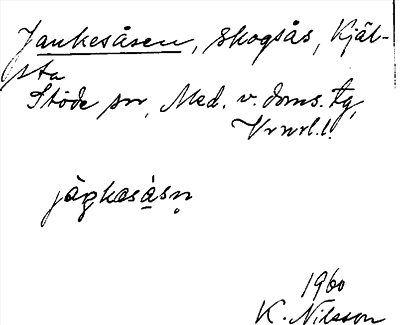 Jankesåsen, skogsås, Kjäl-
sta
Stöde sn, Med. v. doms. tg,
Vrnrl.l.
jàŋkəsåsn̥
1960
K. Nilsson